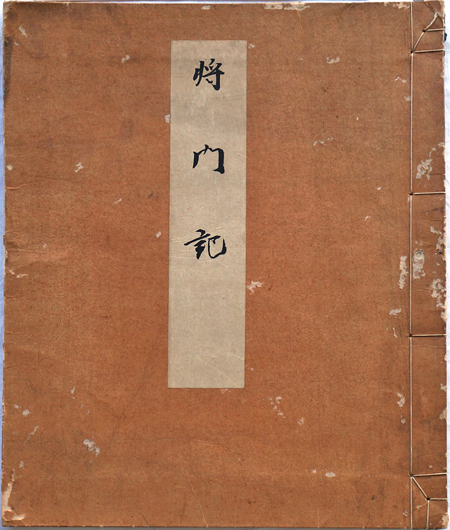 将門記